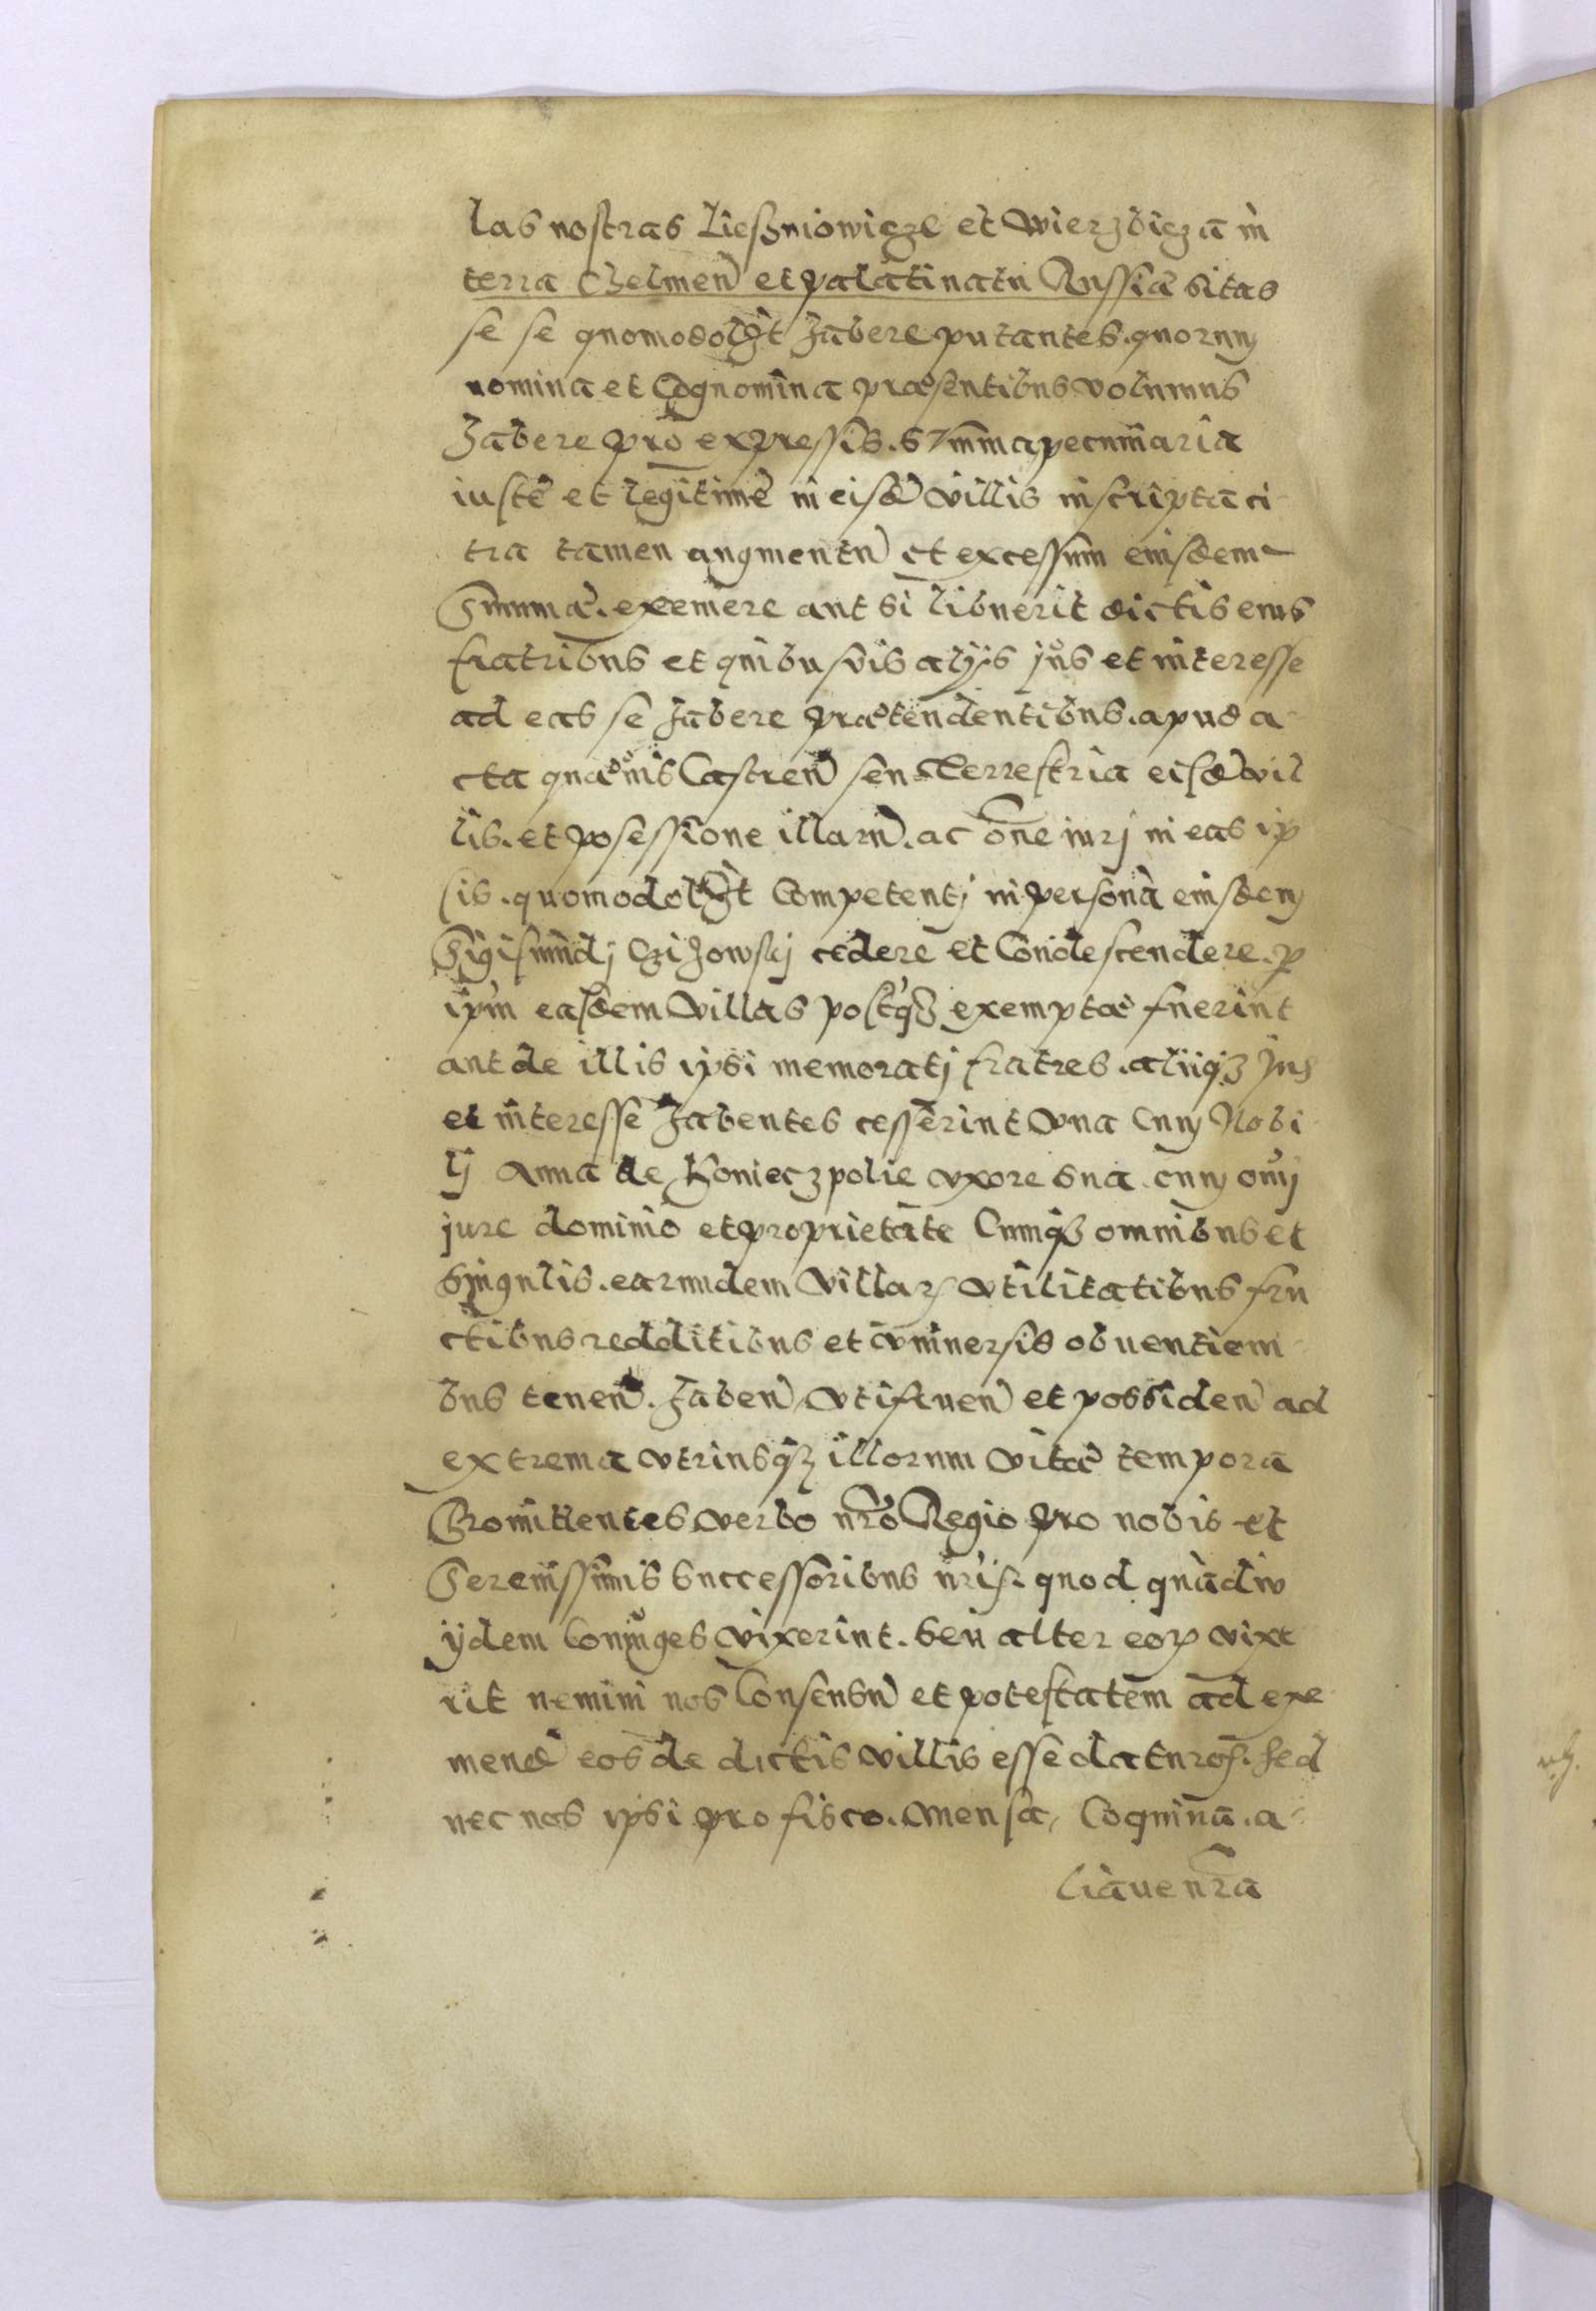 las nostras Lieszniowicze et Wierzbicza in
terra Chelmen et palatinatu Russiæ sitas
se se quomodolt habere putantes. quorum
nomina et Cognomina præsentibus volumus
habere pro expressis. summa pecuniaria
iuste et legitime in eisd villis inscripta ci-
tra tamen augmentu et excessum eiusdem
Summæ. exemere aut si libuerit dictis eius
fratribus et quibusvis alijs jus et interesse
ad eas se habere prætendentibus. apud a-
cta quævis Castren seu Terrestria eisd vil
lis. et posessione illaru. ac one iurj in eas ip
sis. quomodolt Competentj in persona eiusdem
Sigismundj Czizowskj cedere et Condescendere. p
ipm easdem villas postq exemptæ fuerint
aut de illis ipsi memoratj fratres. aliiq Jus
et interesse habentes cesserint vna Cum Nobi
lj Anna de Konieczpolie vxore sua. cum onj
jure dominio et proprietate Cumq omnibus et
singulis. earundem villar vtilitatibus fru
ctibus redditibus et vniuersis obuentioni-
bus tenen. haben vtifruen et possiden ad
extrema vtriusq illorum vitæ tempora
Promittentes verbo nro Regio pro nobis et
Serenissimis successoribus nris. quod quadiv
ijdem Coniuges vixerint. seu alter eor vixe
rit nemini nos Consensu et potestatem ad exe
mend eos de dictis villis esse daturos. sed
nec nos ipsi pro fisco. mensa, Coquina. a-
liaue nra